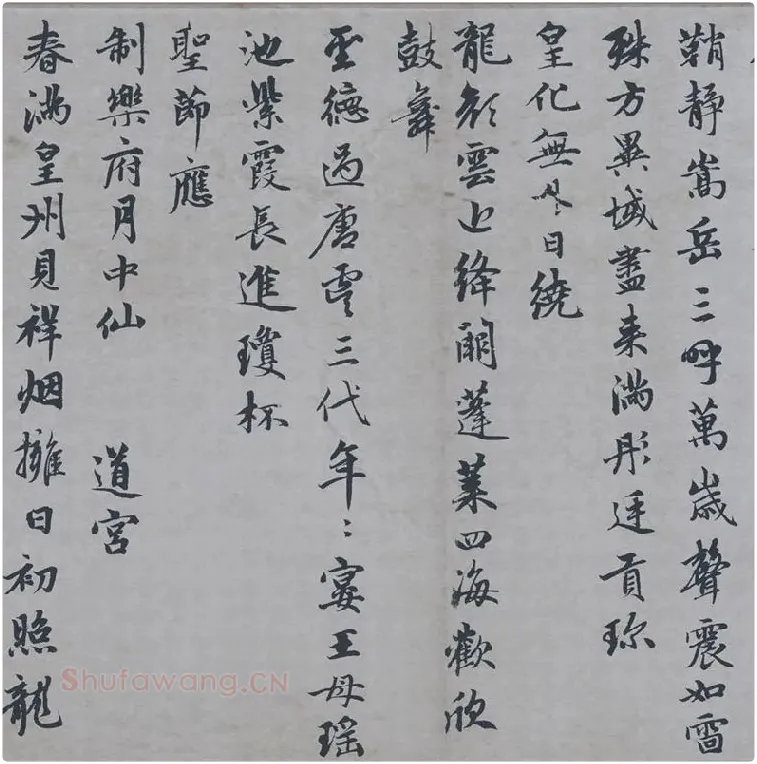 鞘靜嵩岳三呼萬歲聲震如雷
殊方異域盡来滿彤廷貢珎
皇化無外日繞
龍顏雲近絳闕蓬萊四海歡欣
鼓舞
聖德過唐虞三代年〻宴王母瑤
池紫霞長進瓊杯
聖節應
制樂府月中仙 道宮
春滿皇州見祥烟擁日初照龍
Shufawang.CN